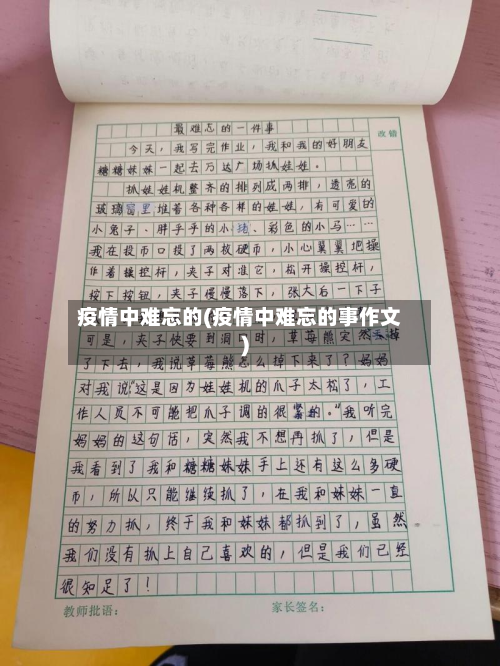 最难忘的一件事
改错
今天，我写完作业，我和我的好朋友
糖糖妹妹一起去万达广场抓娃娃。
抓娃娃机整齐的排列成两排，透亮的
玻璃窗里堆着各种各样的娃娃，有可爱的
小兔子、胖乎乎的小猪、彩色的小马……
我在投币口投了两枚硬币，小心翼翼地操
作着操控杆，夹子对准它，松开操控杆，
按下按钮，夹子慢慢落下，张大右一下子
疫情中难忘的(疫情中难忘的事作文
)
可是，夹子快要到洞口时，草莓熊突然又掉
了下去，我说草莓熊怎么掉下来了？妈妈
对我说“这是因为娃娃机的爪子太松了，工
作人员不可能把爪子调的很紧的。”我听完
妈妈的这句话，突然我不想再抓了，但是
我看到了我和糖糖妹妹手上还有这么多硬
币，所以只能继续抓了，在我和妹妹一直
的努力抓，终于我和妹妹都抓到了，虽然
我们没有抓上自己喜欢的，但是我们已经
很知足了！
教师批语：
家长签名：